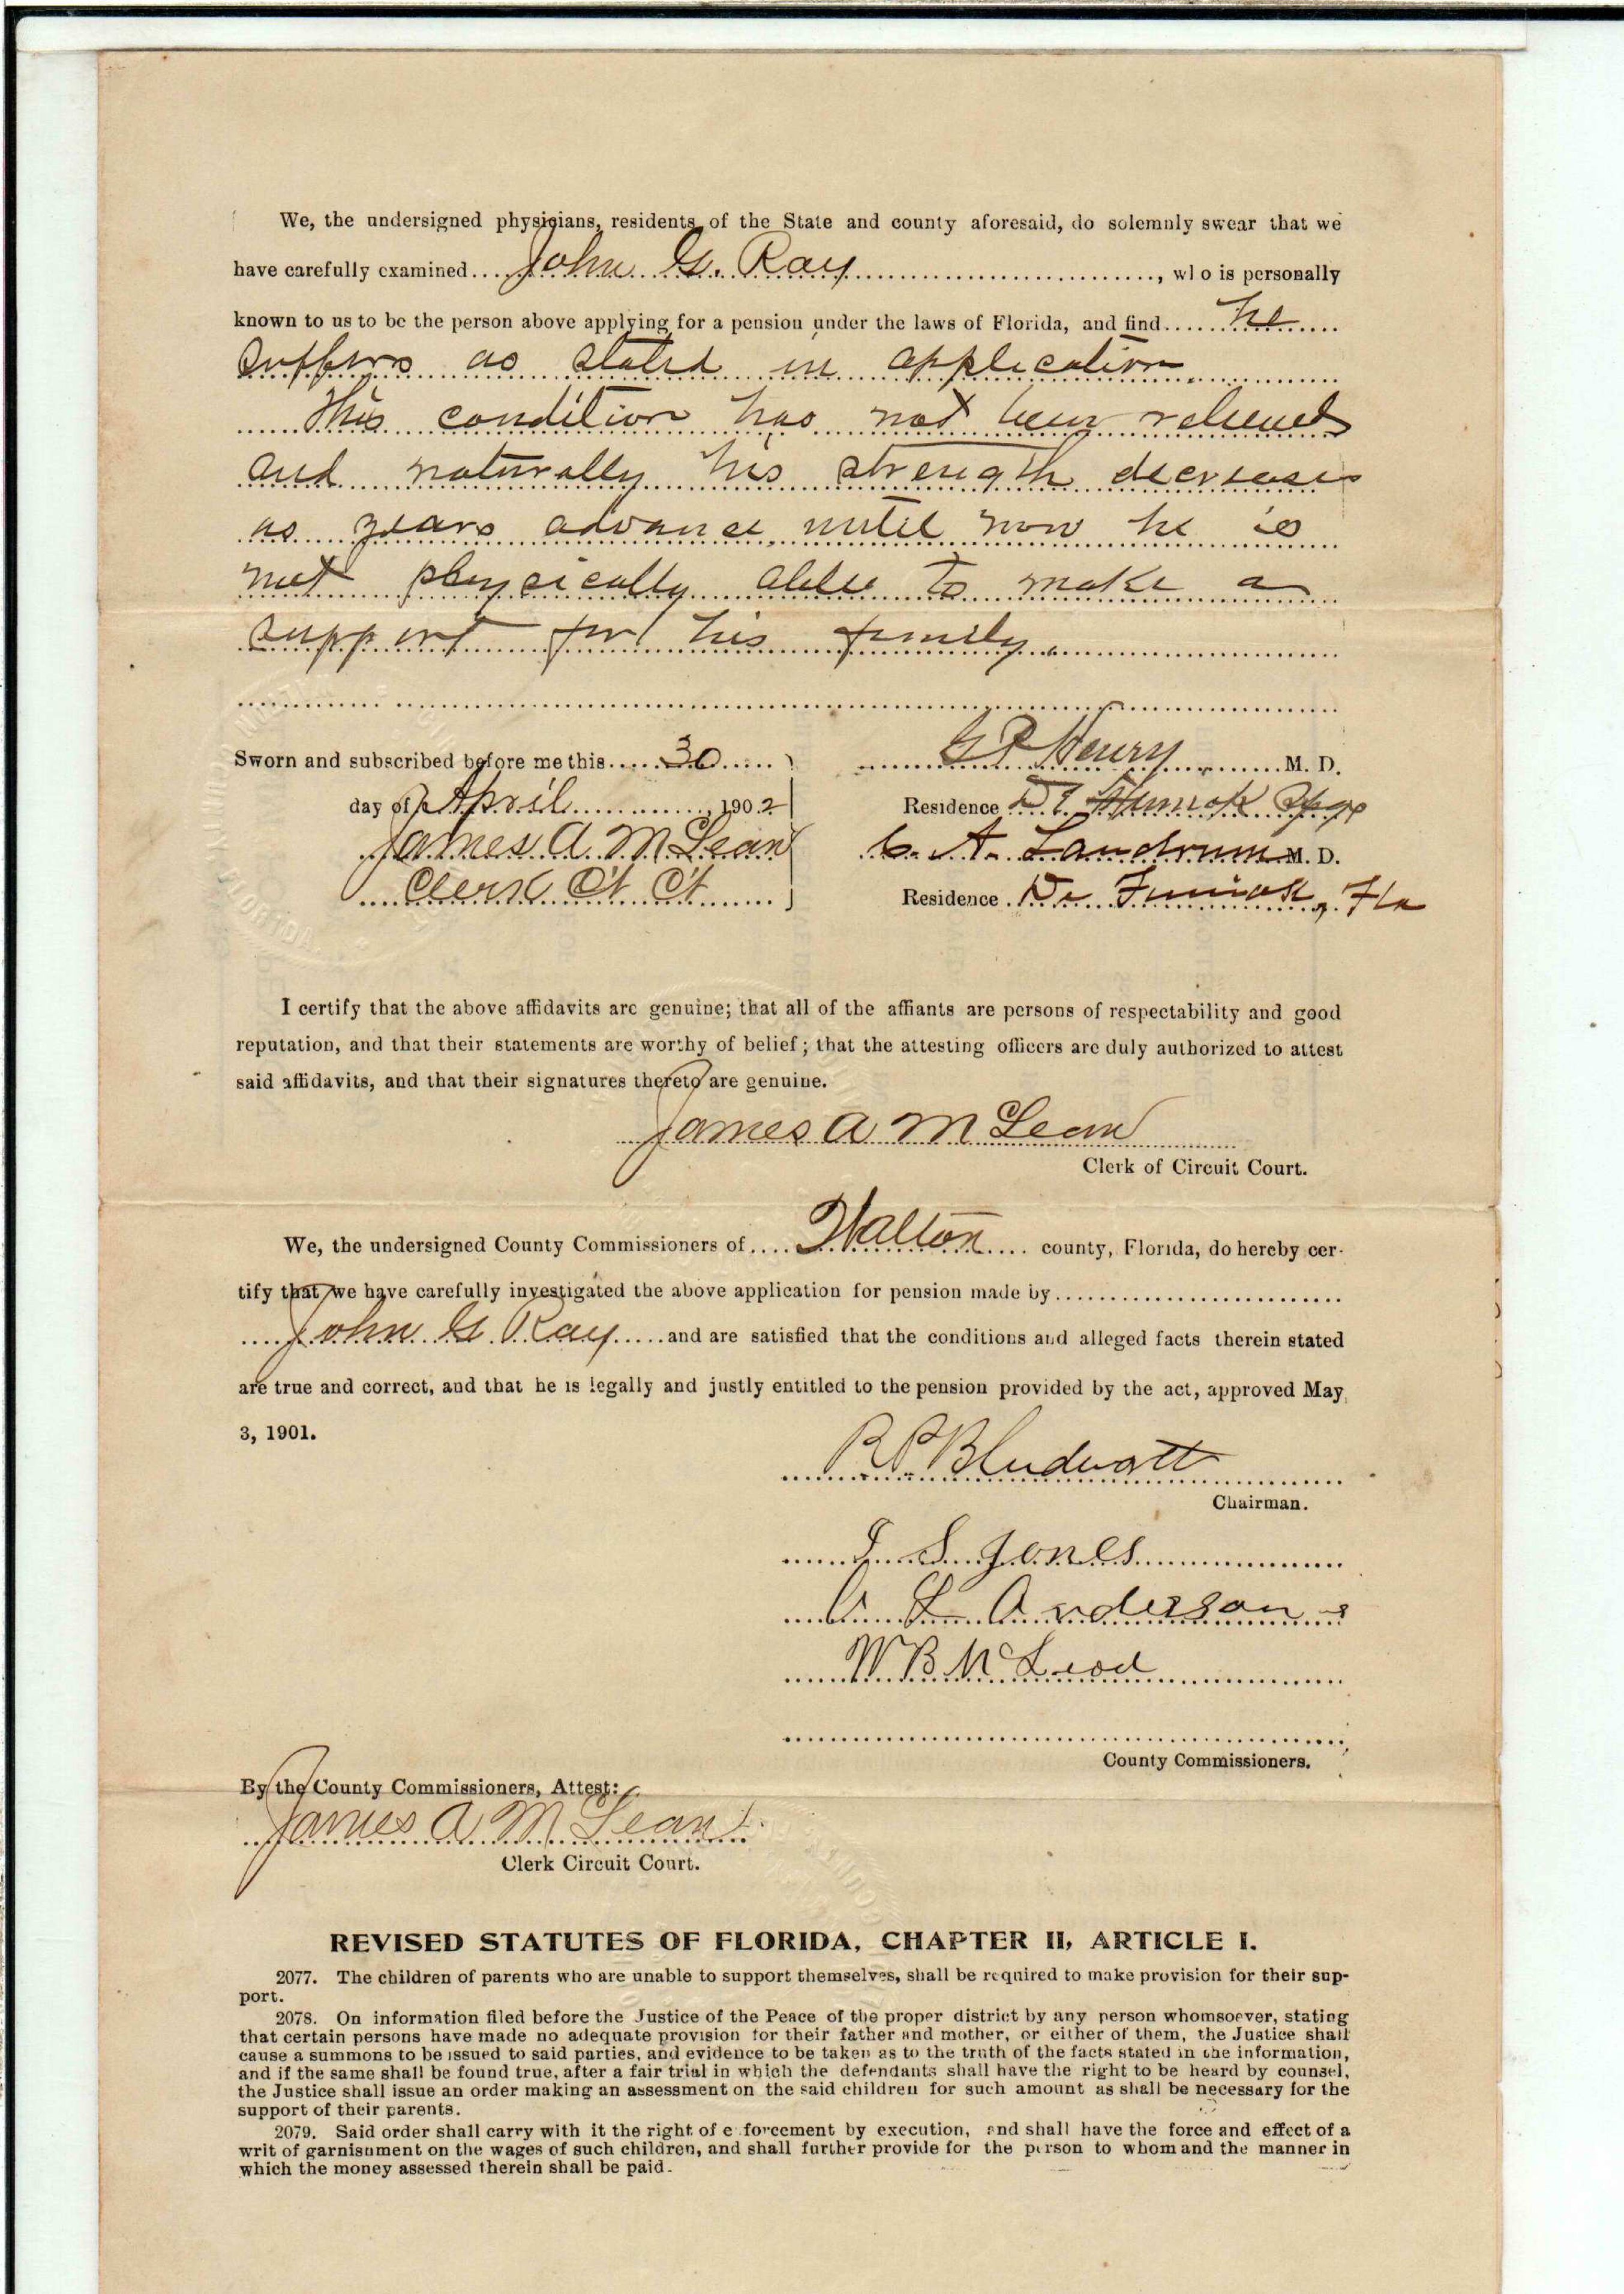 We, the undersigned physicians, residents of the State and county aforesaid, do solemnly swear that we
have carefully examined John G. Ray, who is personally
known to us to be the person above applying for a pension under the laws of Florida, and find he
suffers as stated in application.
This condition has not been relieved
and naturally his strength decreases
as years advance, until now he is
not physically able to make a
support for his family.
Sworn and subscribed before me this 30
day of April, 1902
James A McLean
Clerk Ct Ct
G P Henry M. D.
Residence De Funiak Spgs
C. A. Landrum M. D.
Residence De Funiak, Fla
I certify that the above affidavits are genuine; that all of the affiants are persons of respectability and good
reputation, and that their statements are worthy of belief; that the attesting officers are duly authorized to attest
said affidavits, and that their signatures thereto are genuine.
James A McLean
Clerk of Circuit Court.
We, the undersigned County Commissioners of Walton county, Florida, do hereby cer-
tify that we have carefully investigated the above application for pension made by
John G. Ray and are satisfied that the conditions and alleged facts therein stated
are true and correct, and that he is legally and justly entitled to the pension provided by the act, approved May
3, 1901.
R P
Chairman.
S Jones
L Anderson
W B McLeod
County Commissioners.
By the County Commissioners, Attest:
James A McLean
Clerk Circuit Court.
REVISED STATUTES OF FLORIDA, CHAPTER II, ARTICLE I.
2077. The children of parents who are unable to support themselves, shall be required to make provision for their sup-
port.
2078. On information filed before the Justice of the Peace of the proper district by any person whomsoever, stating
that certain persons have made no adequate provision for their father and mother, or either of them, the Justice shall
cause a summons to be issued to said parties, and evidence to be taken as to the truth of the facts stated in the information,
and if the same shall be found true, after a fair trial in which the defendants shall have the right to be heard by counsel,
the Justice shall issue an order making an assessment on the said children for such amount as shall be necessary for the
support of their parents.
2079. Said order shall carry with it the right of e forcement by execution, and shall have the force and effect of a
writ of garnishment on the wages of such children, and shall further provide for the person to whom and the manner in
which the money assessed therein shall be paid.